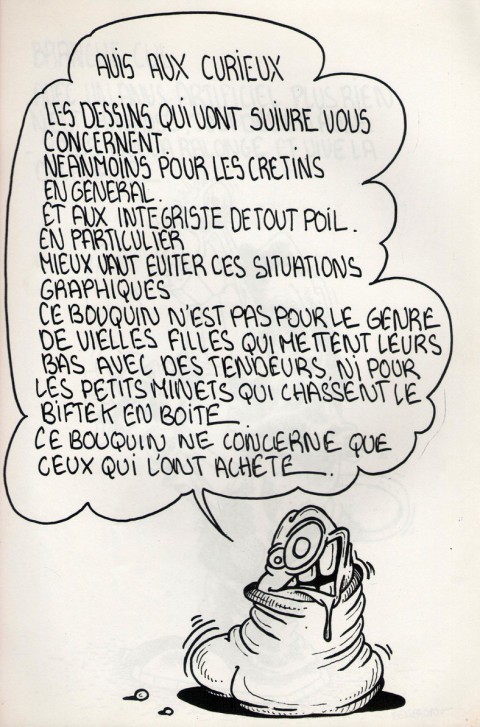 AVIS AUX CURIEUX
LES DESSINS QUI VONT SUIVRE VOUS
CONCERNENT,
NEANMOINS POUR LES CRETINS
EN GENERAL.
ET AUX INTEGRISTE DE TOUT POIL.
EN PARTICULIER
MIEUX VAUT EVITER CES SITUATIONS
GRAPHIQUES
CE BOUQUIN N'EST PAS POUR LE GENRE
DE VIELLES FILLES QUI METTENT LEURS
BAS AVEC DES TENDEURS, NI POUR
LES PETITS MINETS QUI CHASSENT LE
BIFTEK EN BOITE.
CE BOUQUIN NE CONCERNE QUE
CEUX QUI L'ONT ACHÉTÉ.